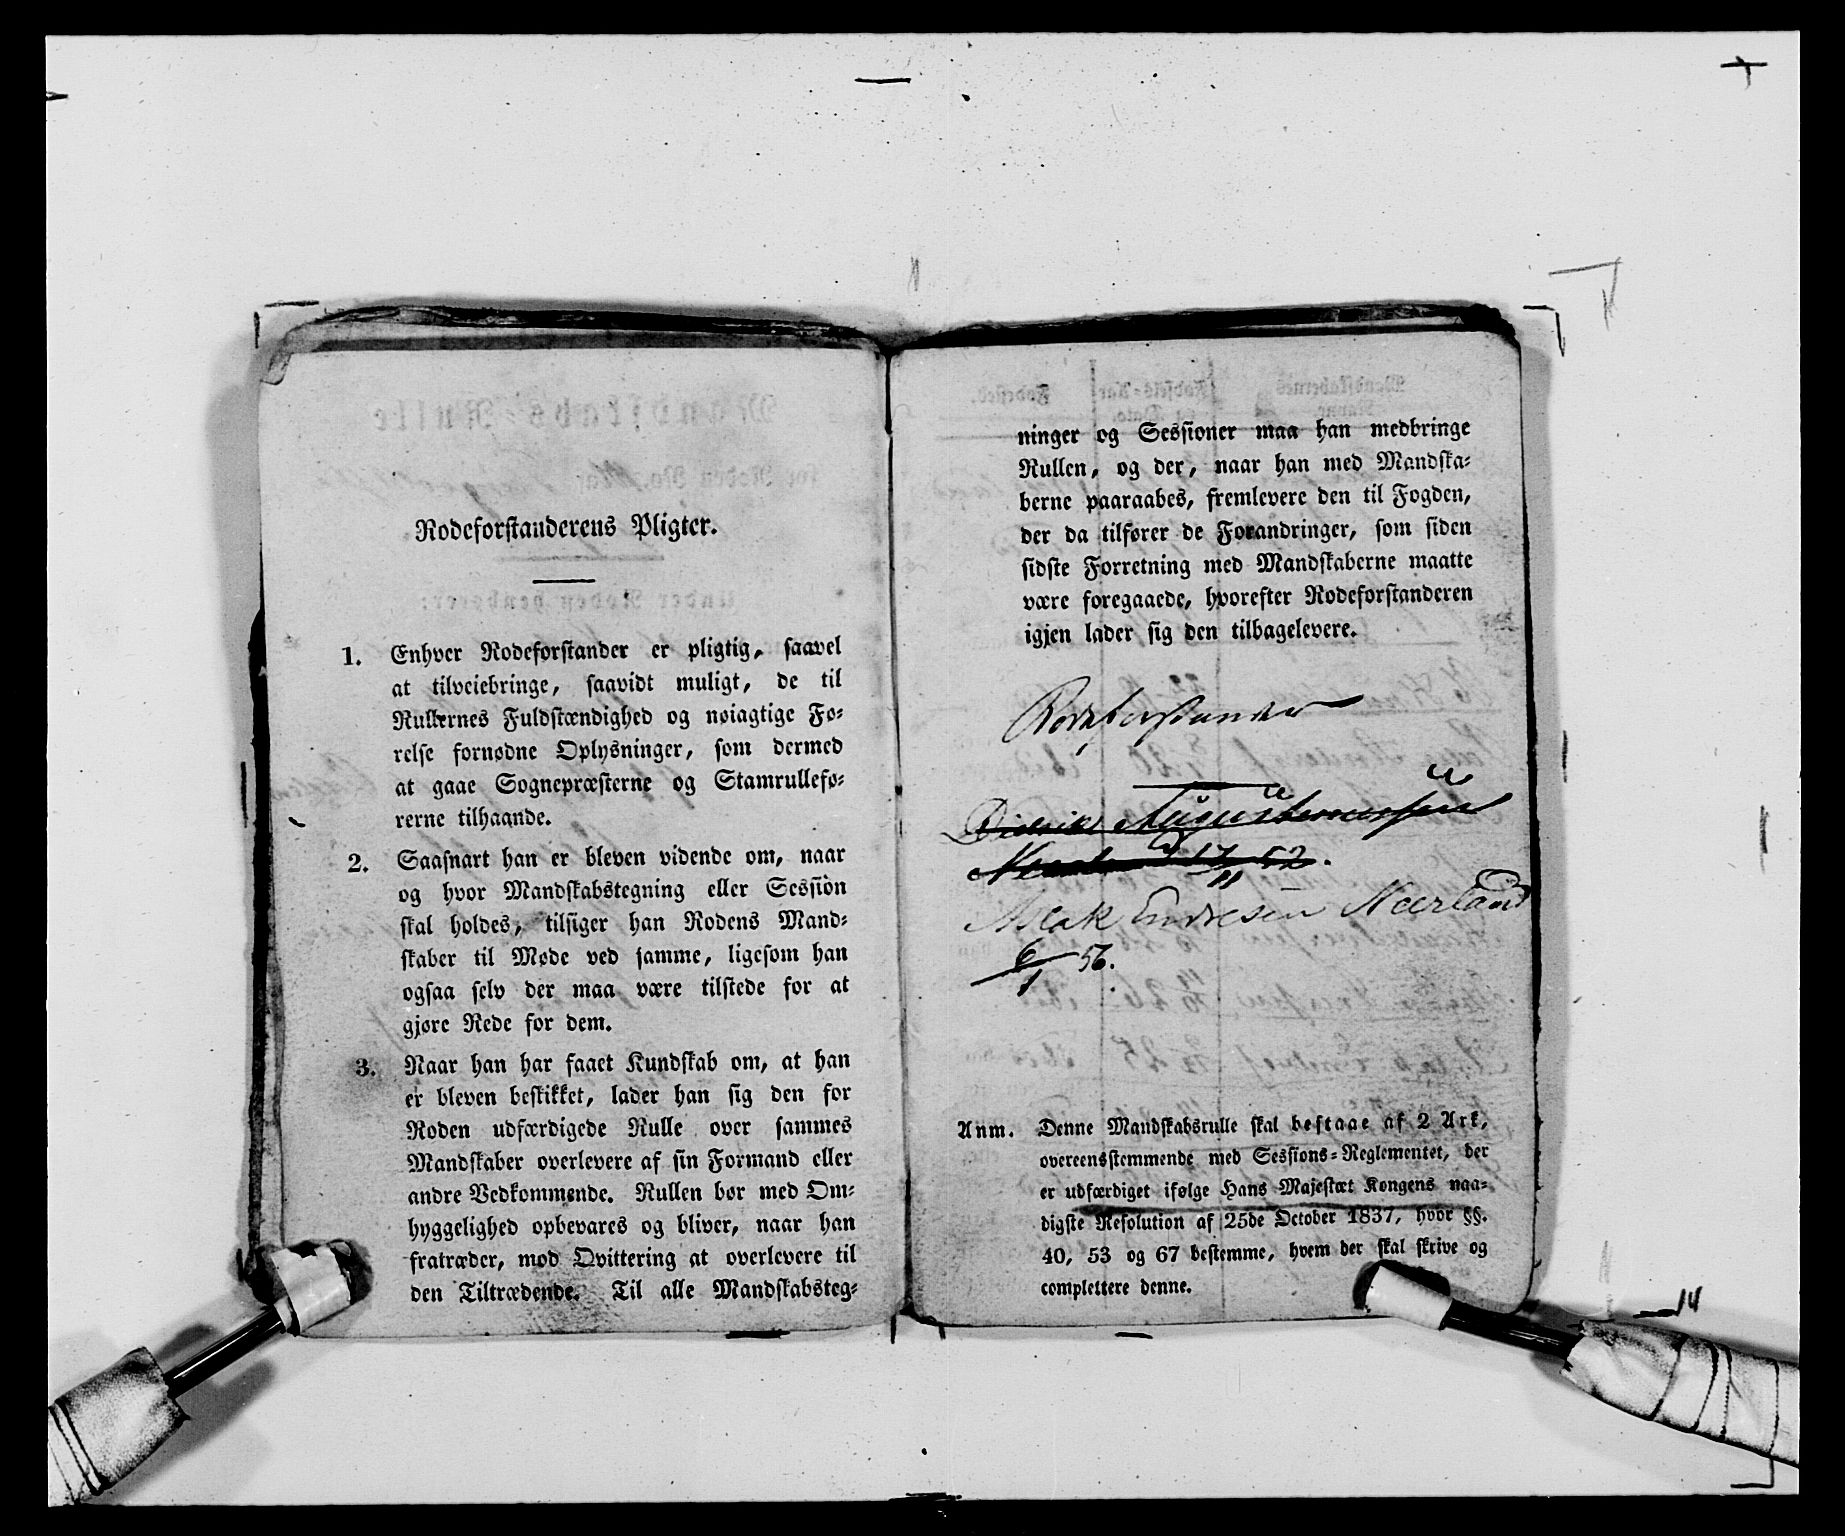 Rodeforstanderens Pligter.
1. Enhver Rodeforstander er pligtig, saavel
at tilveiebringe, saavidt muligt, de til
Rullernes Fuldstændighed og nøiagtige Fø-
relse fornødne Oplysninger, som dermed
at gaae Sognepræsterne og Stamrullefø-
rerne tilhaande.
2. Saasnart han er bleven vidende om, naar
og hvor Mandskabstegning eller Session
skal holdes, tilsiger han Rodens Mand-
skaber til Møde ved samme, ligesom han
ogsaa selv der maa være tilstede for at
gjøre Rede for dem.
3. Naar han har faaet Kundskab om, at han
er bleven beskikket, lader han sig den for
Roden udfærdigede Rulle over sammes
Mandskaber overlevere af sin Formand eller
andre Vedkommende. Rullen bør med Om-
hyggelighed opbevares og bliver, naar han
fratræder, mod Qvittering at overlevere til
den Tiltrædende. Til alle Mandskabsteg-
ninger og Sessioner maa han medbringe
Rullen, og der, naar han med Mandska-
berne paaraabes, fremlevere den til Fogden,
der da tilfører de Forandringer, som siden
sidste Forretning med Mandskaberne maatte
være foregaaede, hvorefter Rodeforstanderen
igjen lader sig den tilbagelevere.
Rodeforstander
Didrik
17/11 52.
Aslak Endresen Neerland
6/1 56.
Anm. Denne Mandskabsrulle skal bestaae af 2 Ark,
overeensstemmende med Sessions-Reglementet, der
er udfærdiget ifølge Hans Majestæt Kongens naa-
digste Resolution af 25de October 1837, hvor §§.
40, 53 og 67 bestemme, hvem der skal skrive og
complettere denne.
14